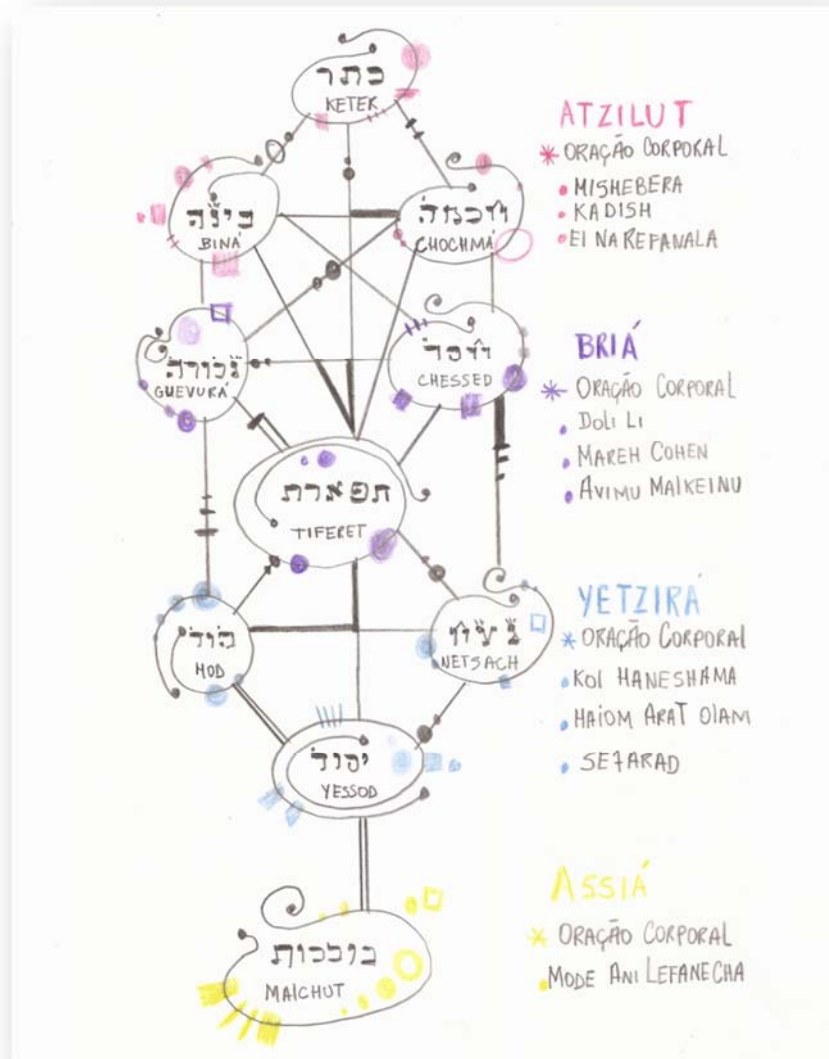 כתר
KETEK
בינה
BINÁ
חכמה
CHOCHMÁ
גבורה
GUEVURÁ
חסד
CHESSED
תפארת
TIFERET
הוד
HOD
נצח
NETSACH
YESSOD
מלכות
MAlCHUT
ATZILUT
* ORAÇÃO CORPORAL
• MISHEBERA
• KADISH
• El NA REFANALA
BRIÁ
* ORAÇÃO CORPORAL
• DOLI LI
• MAREH COHEN
• AVIMU MAlKEINU
YETZIRÁ
* ORAÇÃO CORPORAL
• KOl HANESHAMA
• HAIOM ARAT OlAM
• SEFARAD
ASSIÁ
* ORAÇÃO CORPORAL
• MODE ANI LEFANECHA